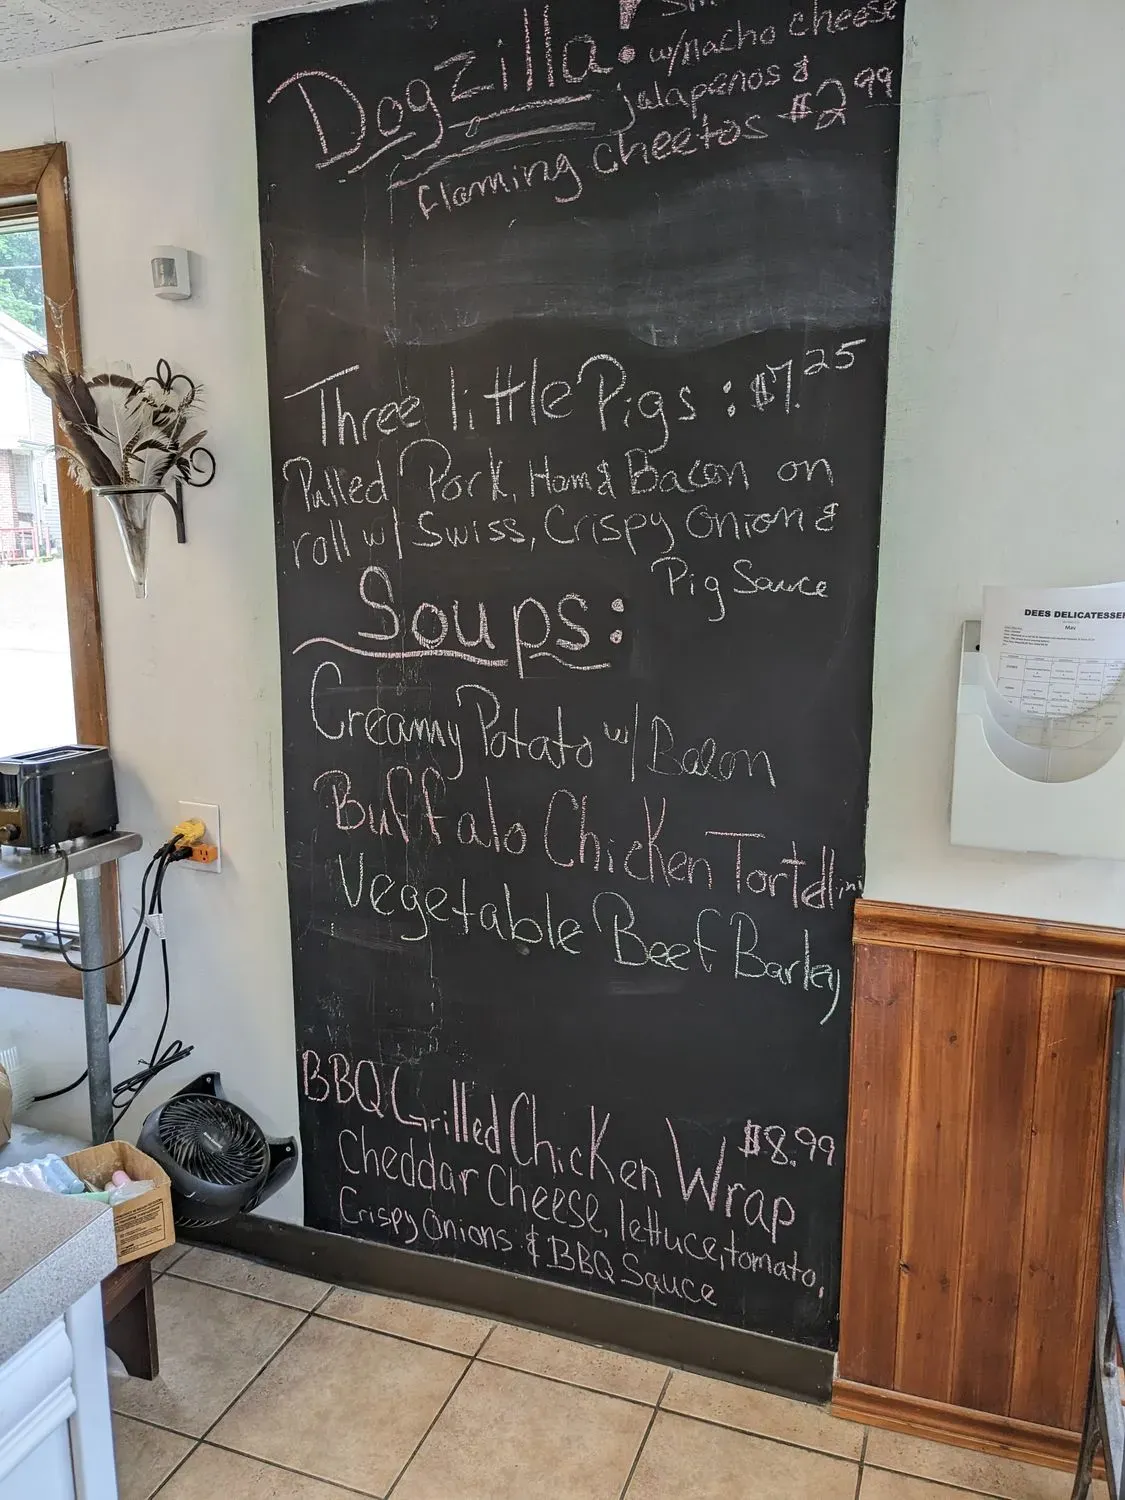 Dogzilla!
w/nacho cheese
jalapenos &
flaming cheetos $2.99
Three little Pigs : $7.25
Pulled Pork, Ham & Bacon on
roll w/ Swiss, Crispy Onion &
Pig Sauce
Soups:
Creamy Potato w/ Bacon
Buffalo Chicken Tortellini
Vegetable Beef Barley
BBQ Grilled Chicken Wrap $8.99
Cheddar Cheese, lettuce, tomato,
Crispy Onions & BBQ Sauce
DEES DELICATESSE
May